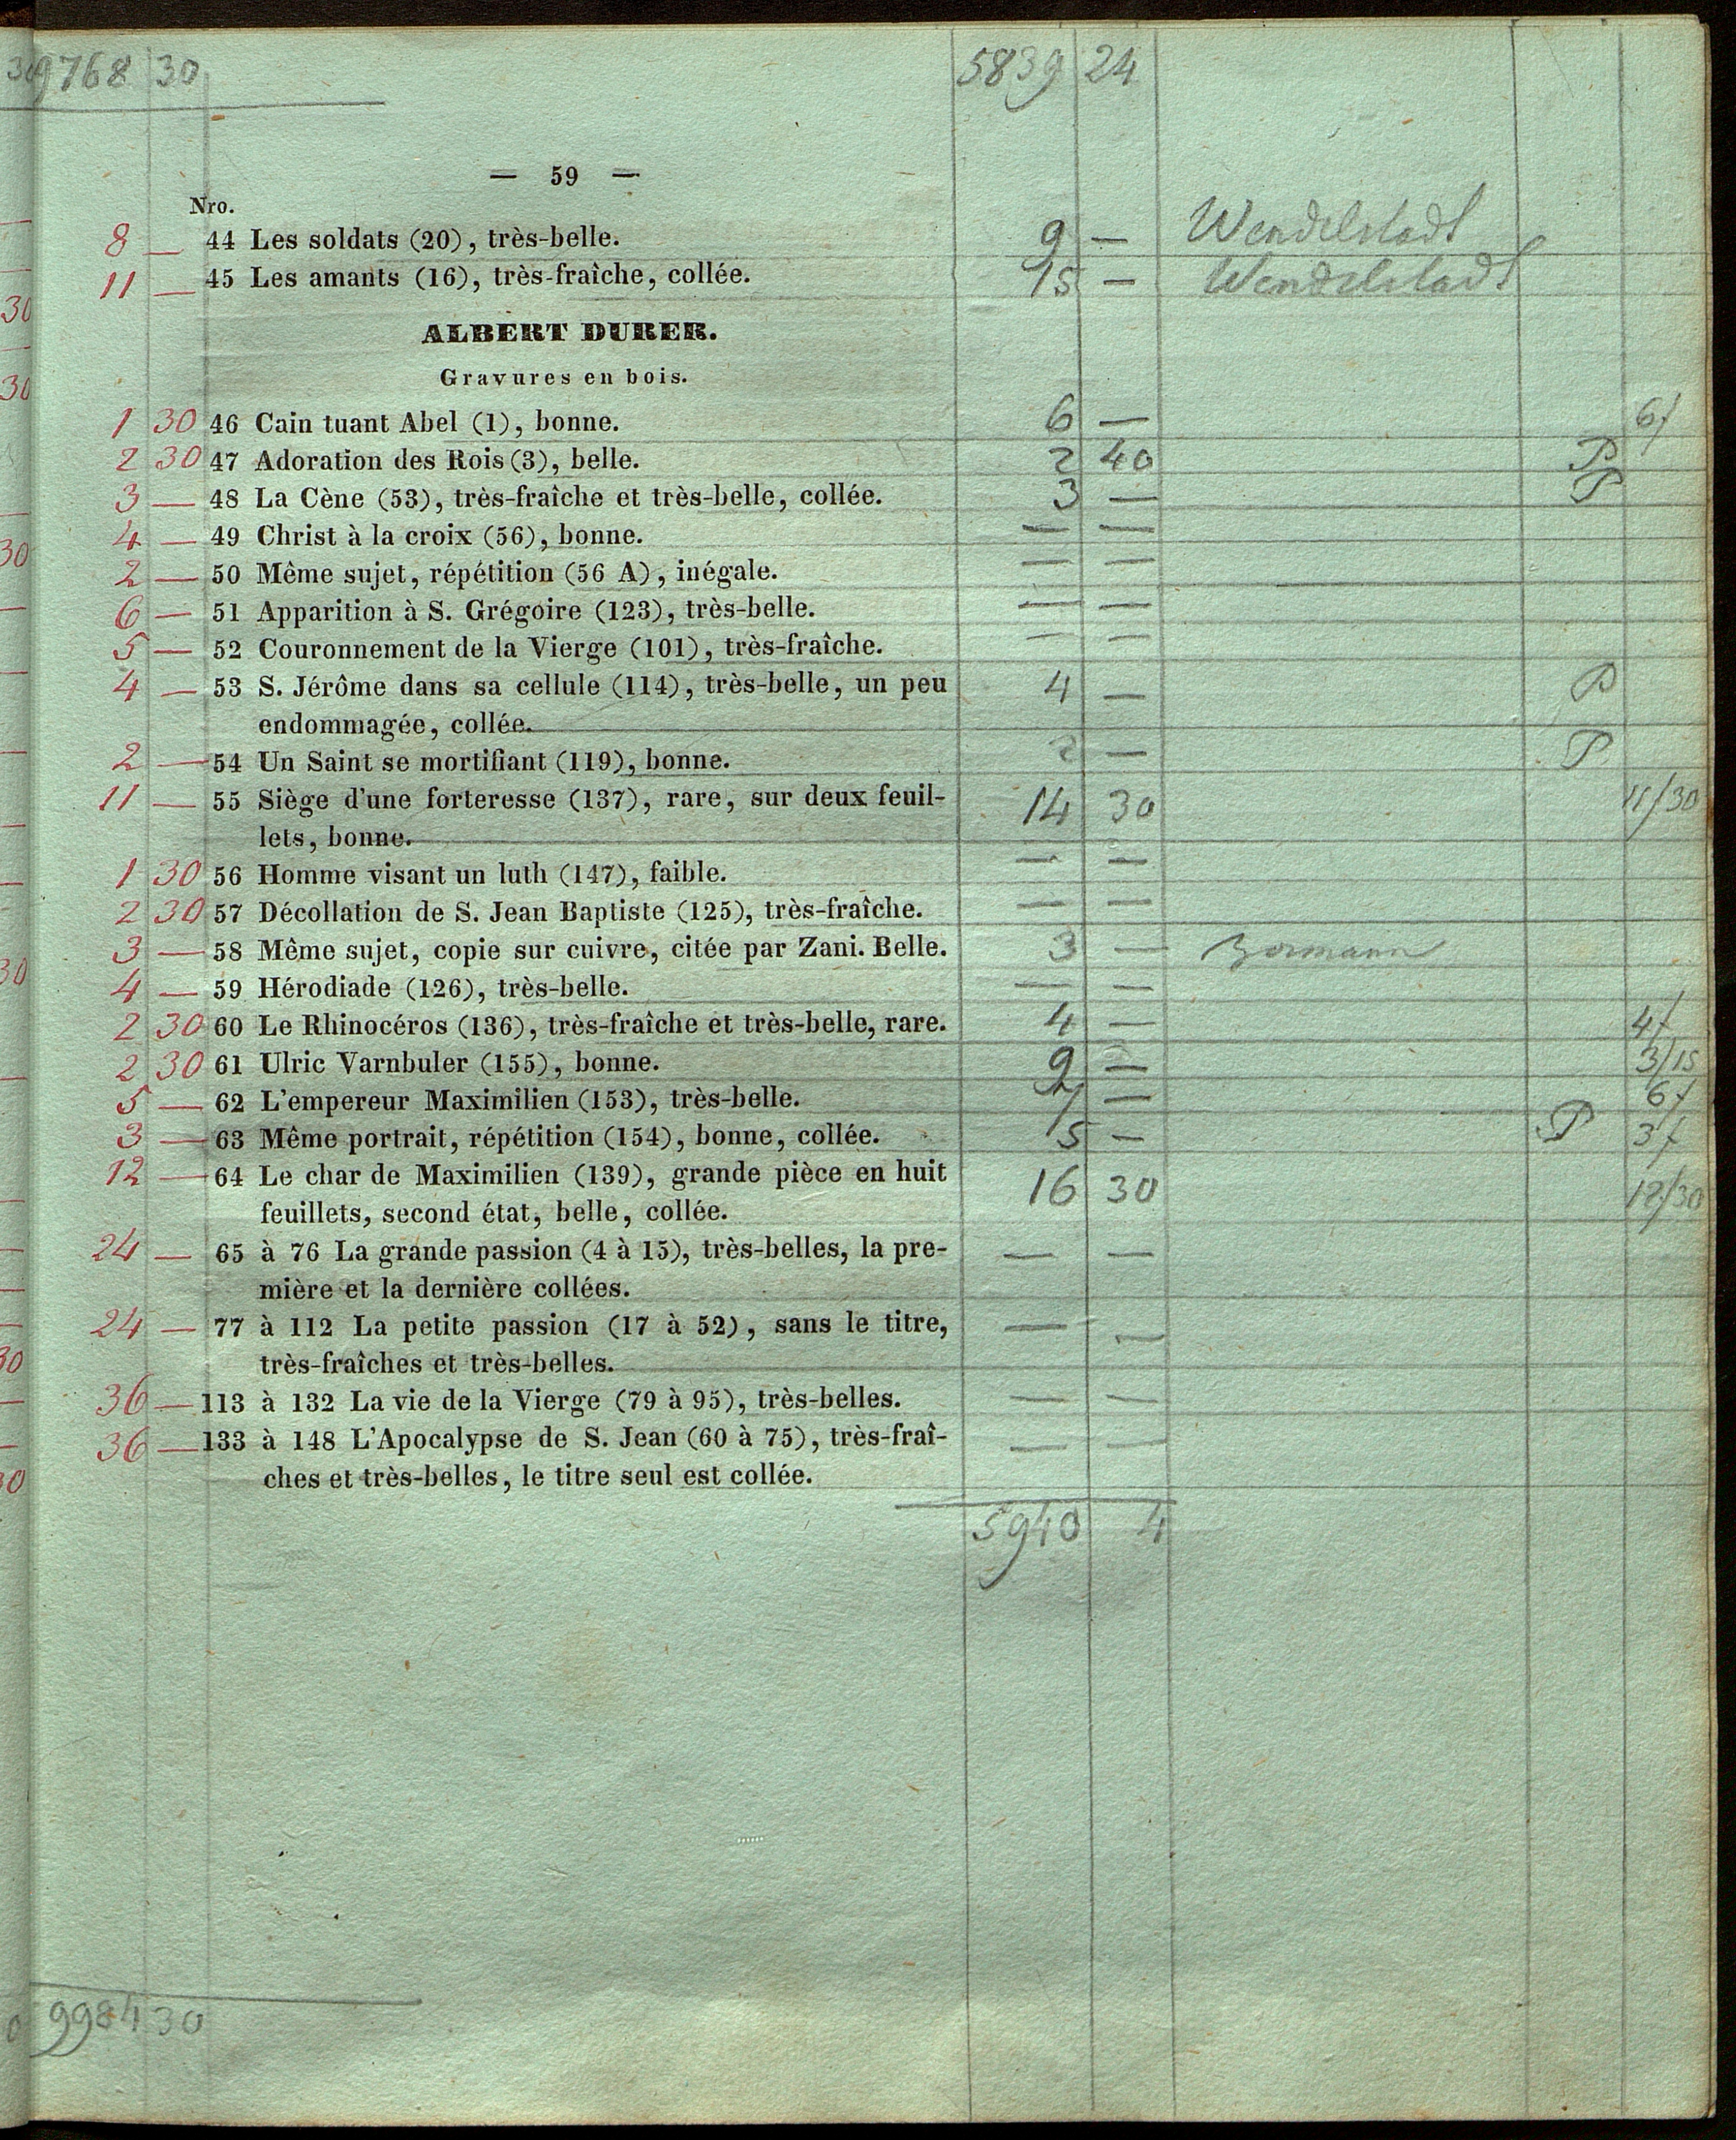 9768 30 5839 24
— 59 —
Nro.
8 — 44 Les soldats (20), très-belle. 9 — Wendelstadt
11 — 45 Les amants (16), très-fraîche, collée. 15 — Wendelstadt
ALBERT DURER.
Gravures en bois.
1 30 46 Cain tuant Abel (1), bonne. 6 — 6/
2 30 47 Adoration des Rois (3), belle. 2 40 P
3 — 48 La Cène (53), très-fraîche et très-belle, collée. 3 — P
4 — 49 Christ à la croix (56), bonne. — —
2 — 50 Même sujet, répétition (56 A), inégale. — —
6 — 51 Apparition à S. Grégoire (123), très-belle. — —
5 — 52 Couronnement de la Vierge (101), très-fraîche. — —
4 — 53 S. Jérôme dans sa cellule (114), très-belle, un peu 4 — P
endommagée, collée.
2 — 54 Un Saint se mortifiant (119), bonne. 2 — P
11 — 55 Siège d'une forteresse (137), rare, sur deux feuil- 14 30 11/30
lets, bonne.
1 30 56 Homme visant un luth (147), faible. — —
2 30 57 Décollation de S. Jean Baptiste (125), très-fraîche. — —
3 — 58 Même sujet, copie sur cuivre, citée par Zani. Belle. 3 —
4 — 59 Hérodiade (126), très-belle. — —
2 30 60 Le Rhinocéros (136), très-fraîche et très-belle, rare. 4 — 4/
2 30 61 Ulric Varnbuler (155), bonne. 9 — 3/15
5 — 62 L'empereur Maximilien (153), très-belle. — 6/
3 — 63 Même portrait, répétition (154), bonne, collée. 5 — P 3/
12 — 64 Le char de Maximilien (139), grande pièce en huit 16 30 12/30
feuillets, second état, belle, collée.
24 — 65 à 76 La grande passion (4 à 15), très-belles, la pre- — —
mière et la dernière collées.
24 — 77 à 112 La petite passion (17 à 52), sans le titre, — —
très-fraîches et très-belles.
36 — 113 à 132 La vie de la Vierge (79 à 95), très-belles. — —
36 — 133 à 148 L'Apocalypse de S. Jean (60 à 75), très-fraî- — —
ches et très-belles, le titre seul est collée.
5940 4
9984 30